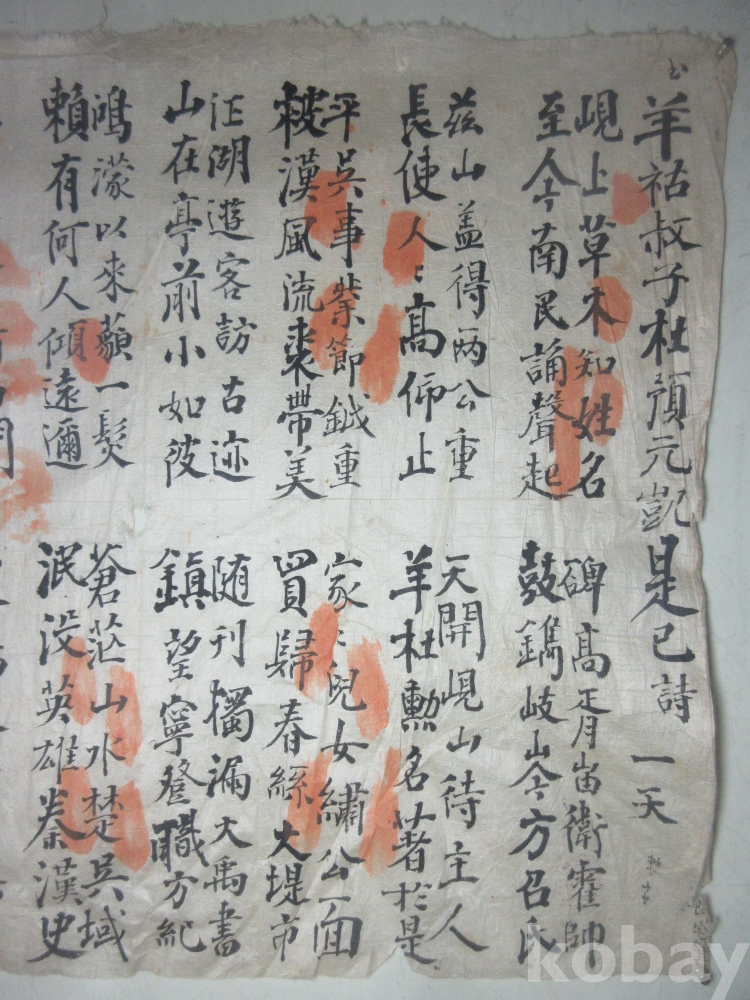 羊祜叔子杜預元凱是已詩 一天
峴上草木知姓名
至今南民誦聲起
玆山盖得兩公重
長使人〻高仰止
平吳事業節鉞重
被漢風流裘帶美
江湖遊客訪古迹
山在亭前小如彼
鴻濛以來一髮
賴有何人傾遠邇
碑高衛霍帥
鼓鐫岐山今方召氏
天開峴山待主人
羊杜勳名著於是
家〻兒女繡公面
買歸春絲大堤市
随刊獨漏大禹書
鎭望寧登職方紀
蒼茫山水楚吳域
泯沒英雄秦漢史
kobay